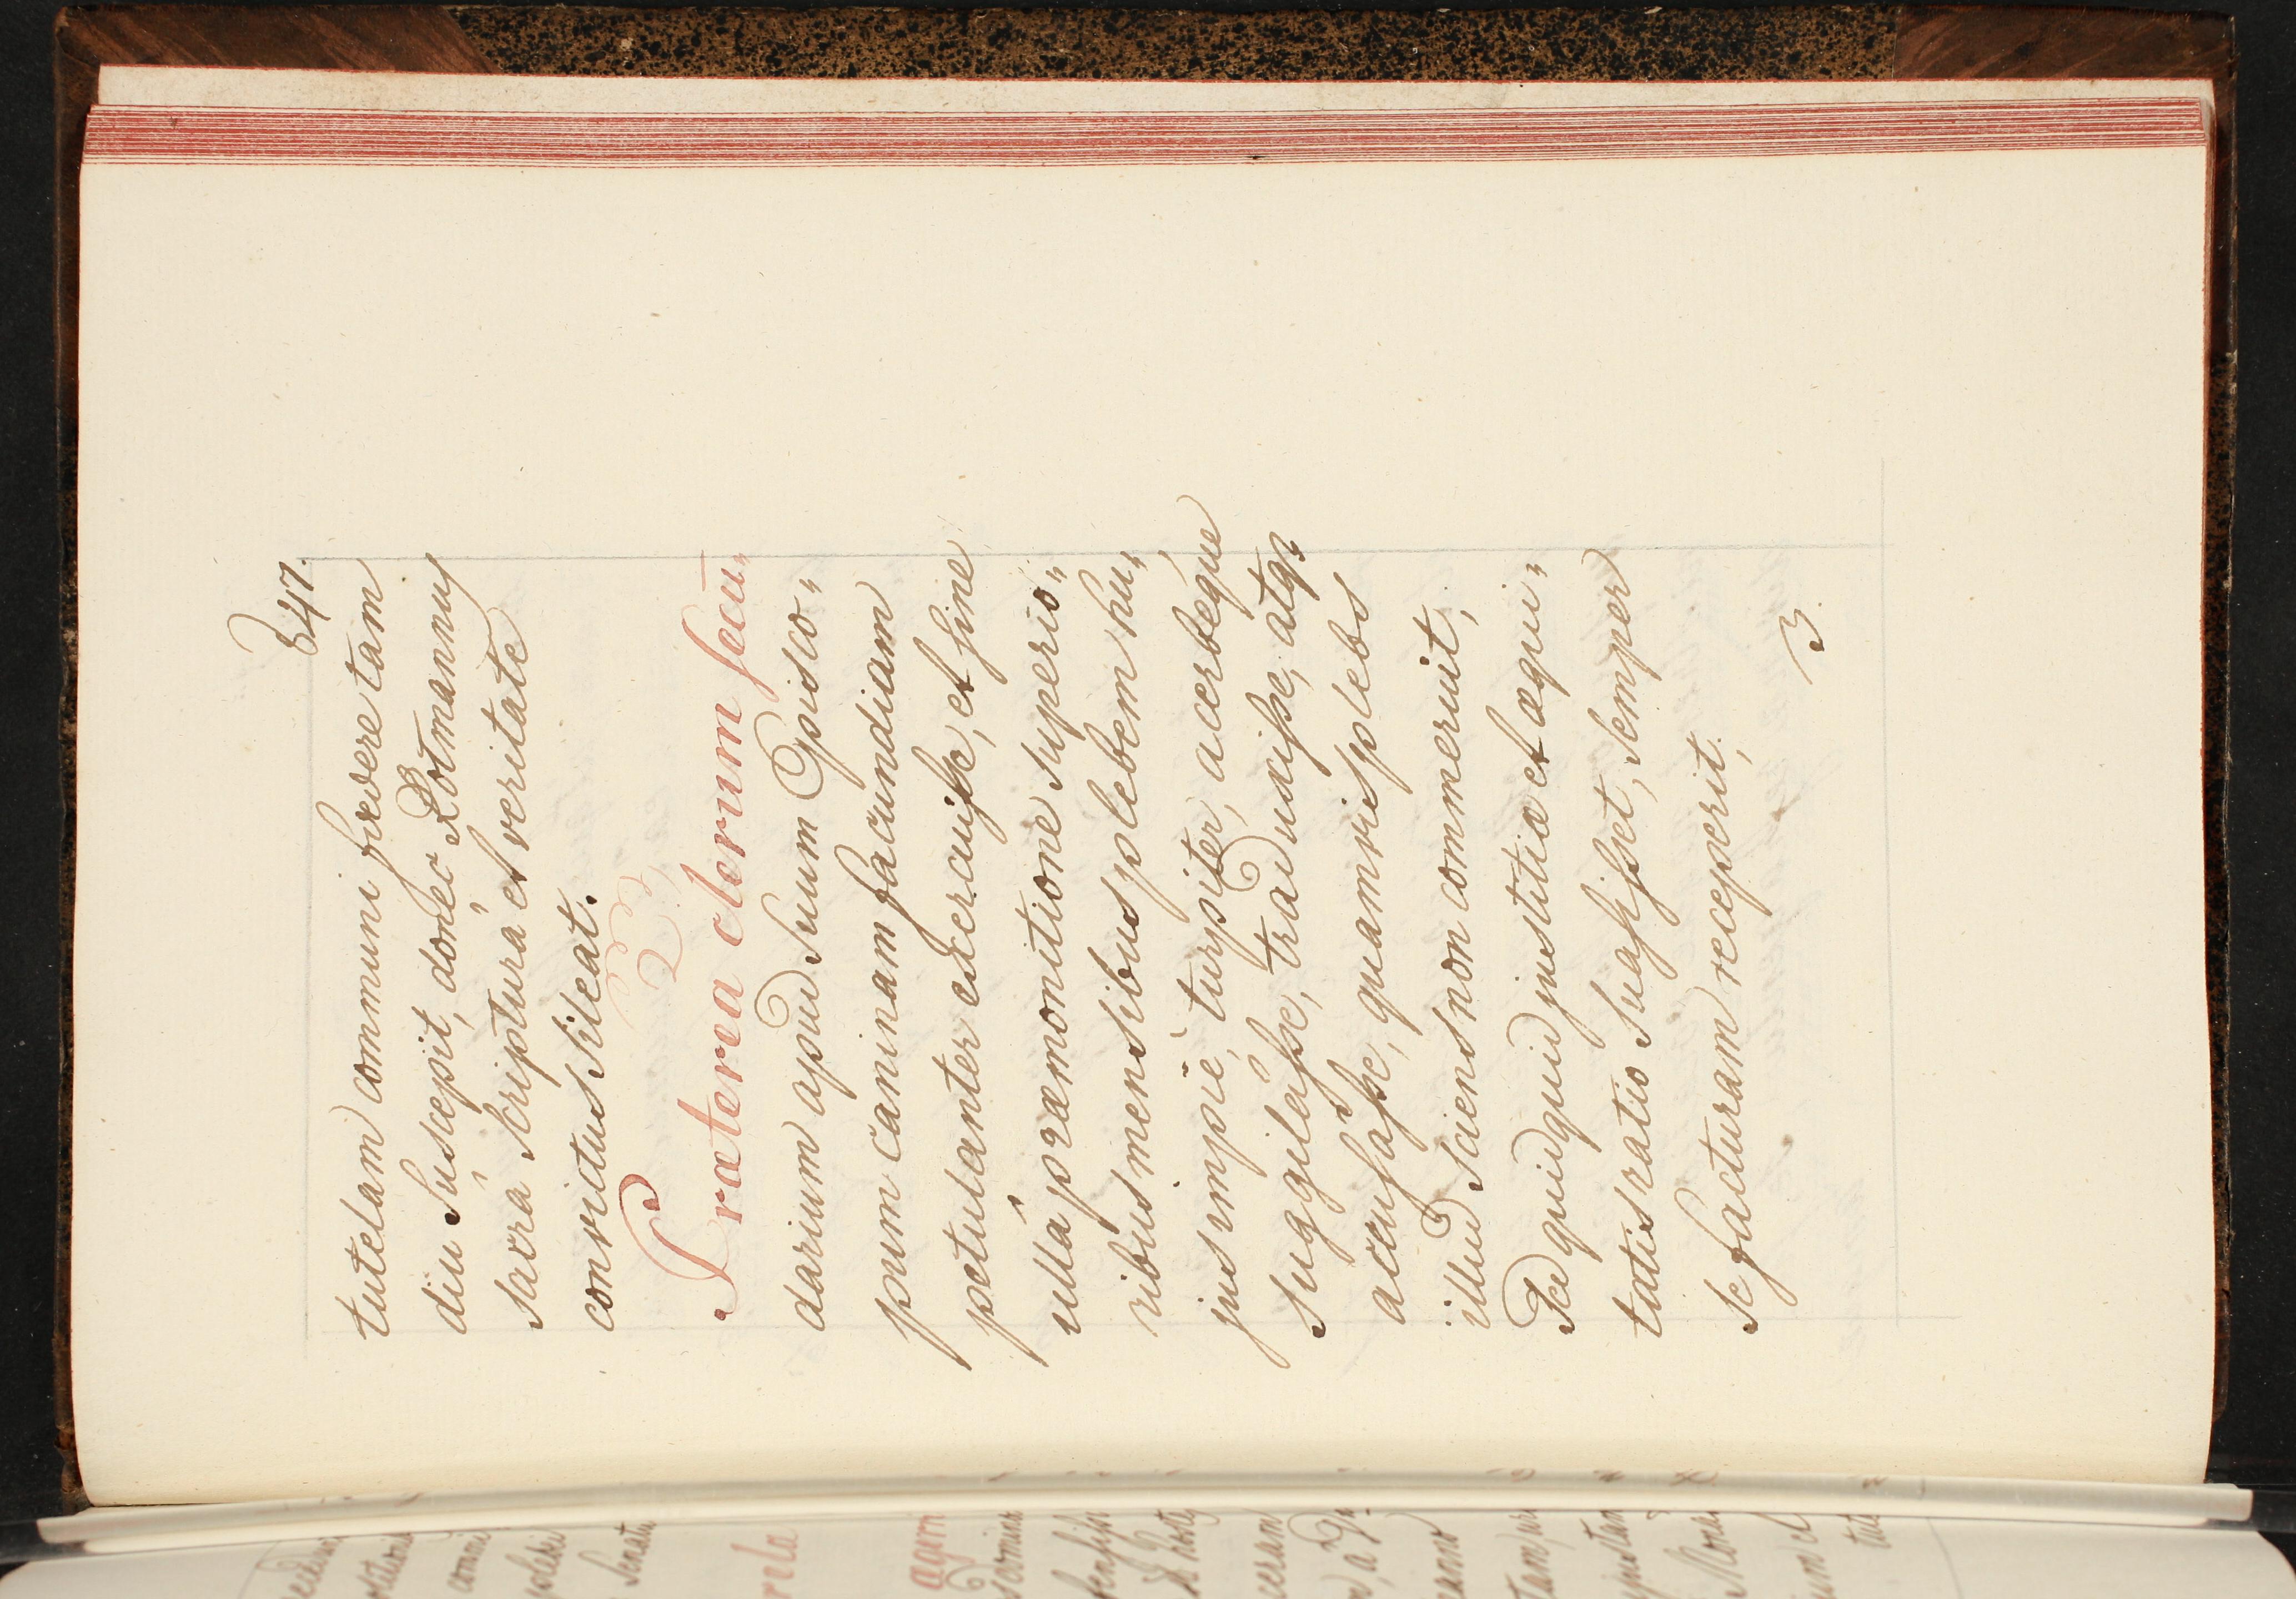 347.
tutelam communi foedere tam
diu suscepit, donec Rotmannus
sacra scriptura et veritate
convictus sileat.
2
Præterea clerum secu„
darium apud suum Episco„
pum caninam facundiam
petulanter exercuisse, et sine
ulla præmonitione superio„
ribus mensibus plebem hu„
jus impie, turpiter, acerbeque
suggilasse, traduxisse, atq;
accusasse, quamvis plebs
illud sciens non commeruit,
Sed quidquid justitiæ et æqui„
tatis ratio suasisset, semper
se facturam receperit,
3.